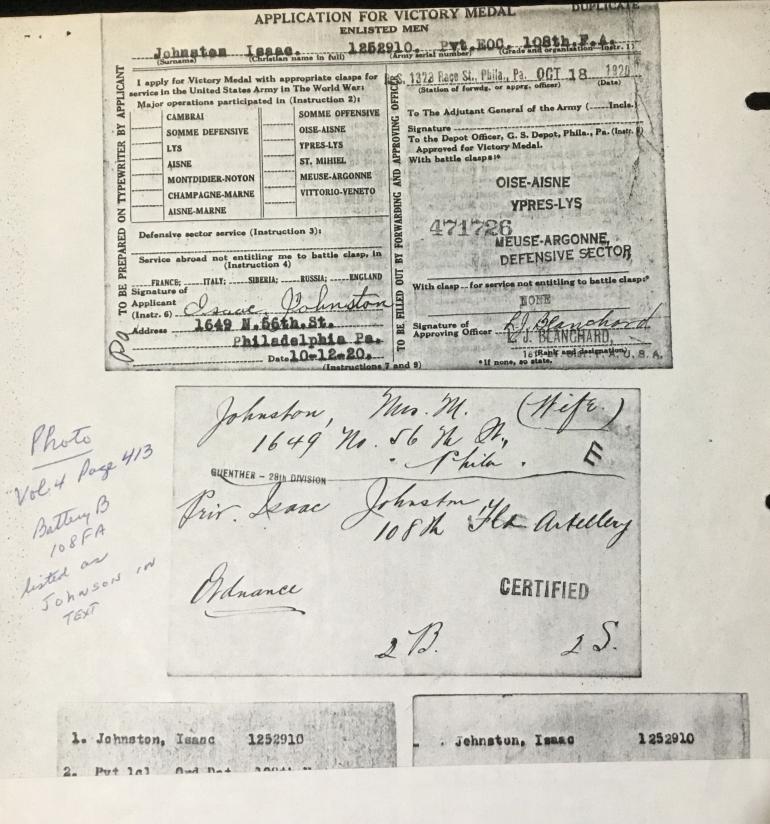 APPLICATION FOR VICTORY MEDAL
DUPLICATE
ENLISTED MEN
Johnston Isaac. 1252910. Pvt.EOC. 108th.F.A.
(Surname) (Christian name in full) (Army serial number) (Grade and organization—Instr. 1)
TO BE PREPARED ON TYPEWRITER BY APPLICANT
I apply for Victory Medal with appropriate clasps for
service in the United States Army in The World War:
Major operations participated in (Instruction 2):
CAMBRAI
SOMME DEFENSIVE
LYS
AISNE
MONTDIDIER-NOYON
CHAMPAGNE-MARNE
AISNE-MARNE
SOMME OFFENSIVE
OISE-AISNE
YPRES-LYS
ST. MIHIEL
MEUSE-ARGONNE
VITTORIO-VENETO
Defensive sector service (Instruction 3):
Service abroad not entitling me to battle clasp, in
(Instruction 4)
FRANCE; ITALY; SIBERIA; RUSSIA; ENGLAND
Signature of
Applicant
(Instr. 6) Isaac Johnston
Address 1649 N.56th.St.
Philadelphia Pa.
Date 10-12-20.
(Instructions 7 and 9)
Pa
TO BE FILLED OUT BY FORWARDING AND APPROVING OFFICER
1323 Race St., Phila., Pa. OCT 18 1920
(Station of forwdg. or apprg. officer) (Date)
To The Adjutant General of the Army (......Incls.)
Signature
To the Depot Officer, G. S. Depot, Phila., Pa. (Instr.
Approved for Victory Medal.
With battle clasps:*
OISE-AISNE
YPRES-LYS
471726
MEUSE-ARGONNE,
DEFENSIVE SECTOR
With clasp for service not entitling to battle clasp:*
NONE
Signature of
Approving Officer L.J. Blanchard
L. J. BLANCHARD,
(Rank and designation) U. S. A.
*If none, so state.
Johnston, Mrs. M. (Wife.)
1649 No. 56 th St,
" Phila.
E
GUENTHER - 28th DIVISION
Priv. Isaac Johnston
108th Fld Artillery
Ordnance
CERTIFIED
2 B. 2 S.
Photo
Vol. 4 Page 413
Battery B
108 FA
listed as
JOHNSON IN
TEXT
1. Johnston, Isaac 1252910
2. Pvt 1cl Ord Det
Johnston, Isaac 1252910